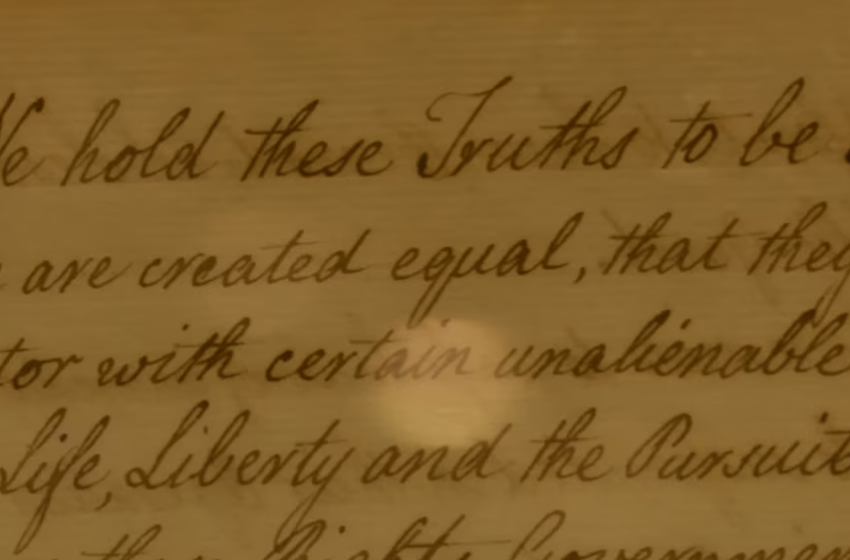 We hold these Truths to be
are created equal, that they
tor with certain unalienable
Life, Liberty and the Pursuit
Rights, Governmen